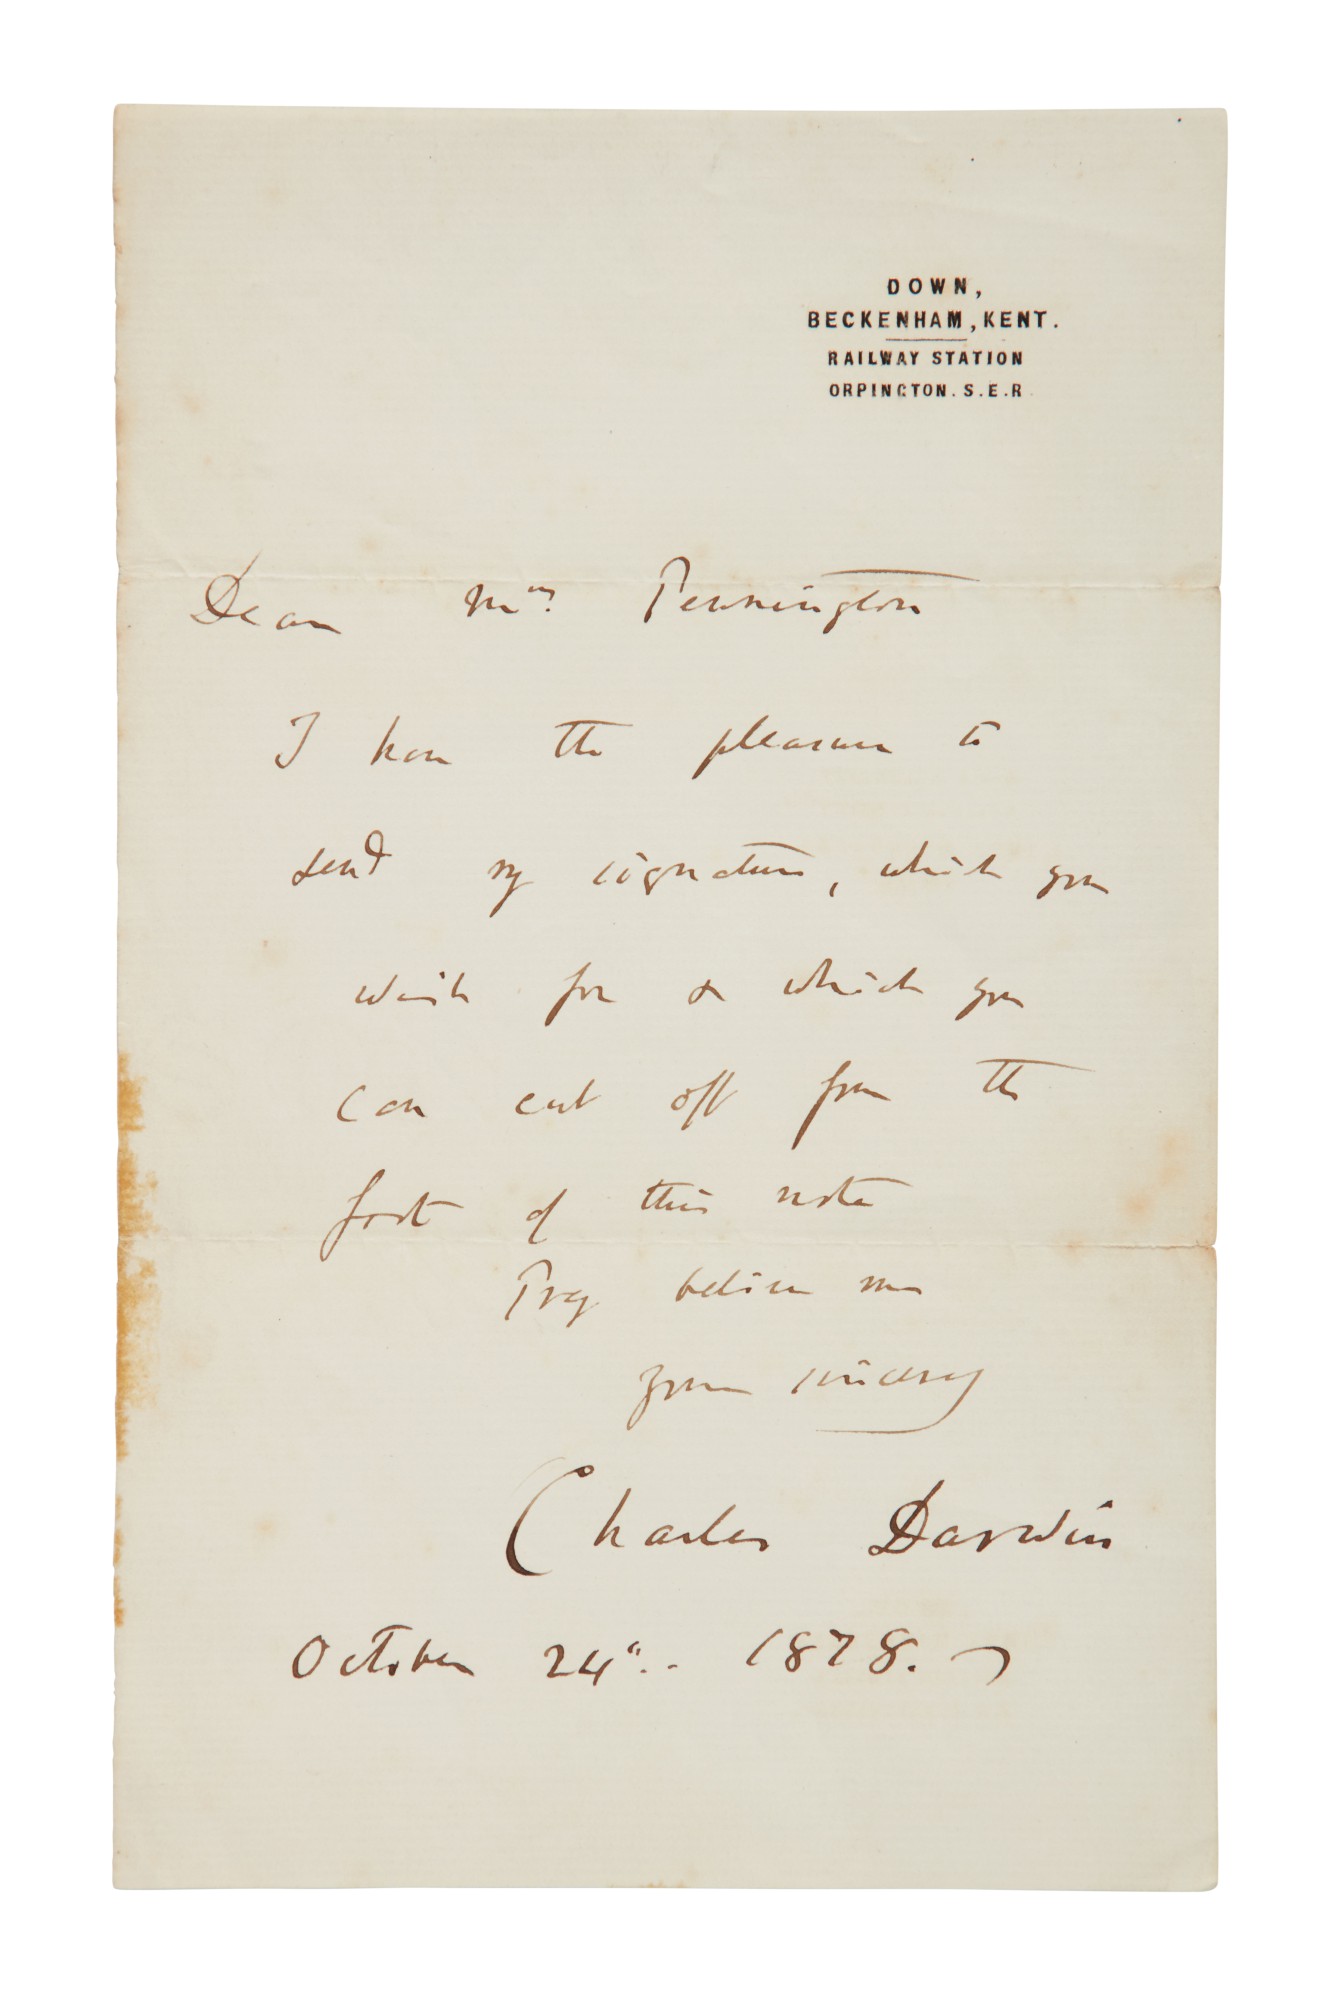 DOWN,
BECKENHAM, KENT.
RAILWAY STATION
ORPINGTON. S.E.R.
Dear Mrs. Pennington
I have the pleasure to
send my signature, which you
wish for & which you
can cut off from the
foot of this note
Pray believe me
yours sincerely
Charles Darwin
October 24th.. 1878.